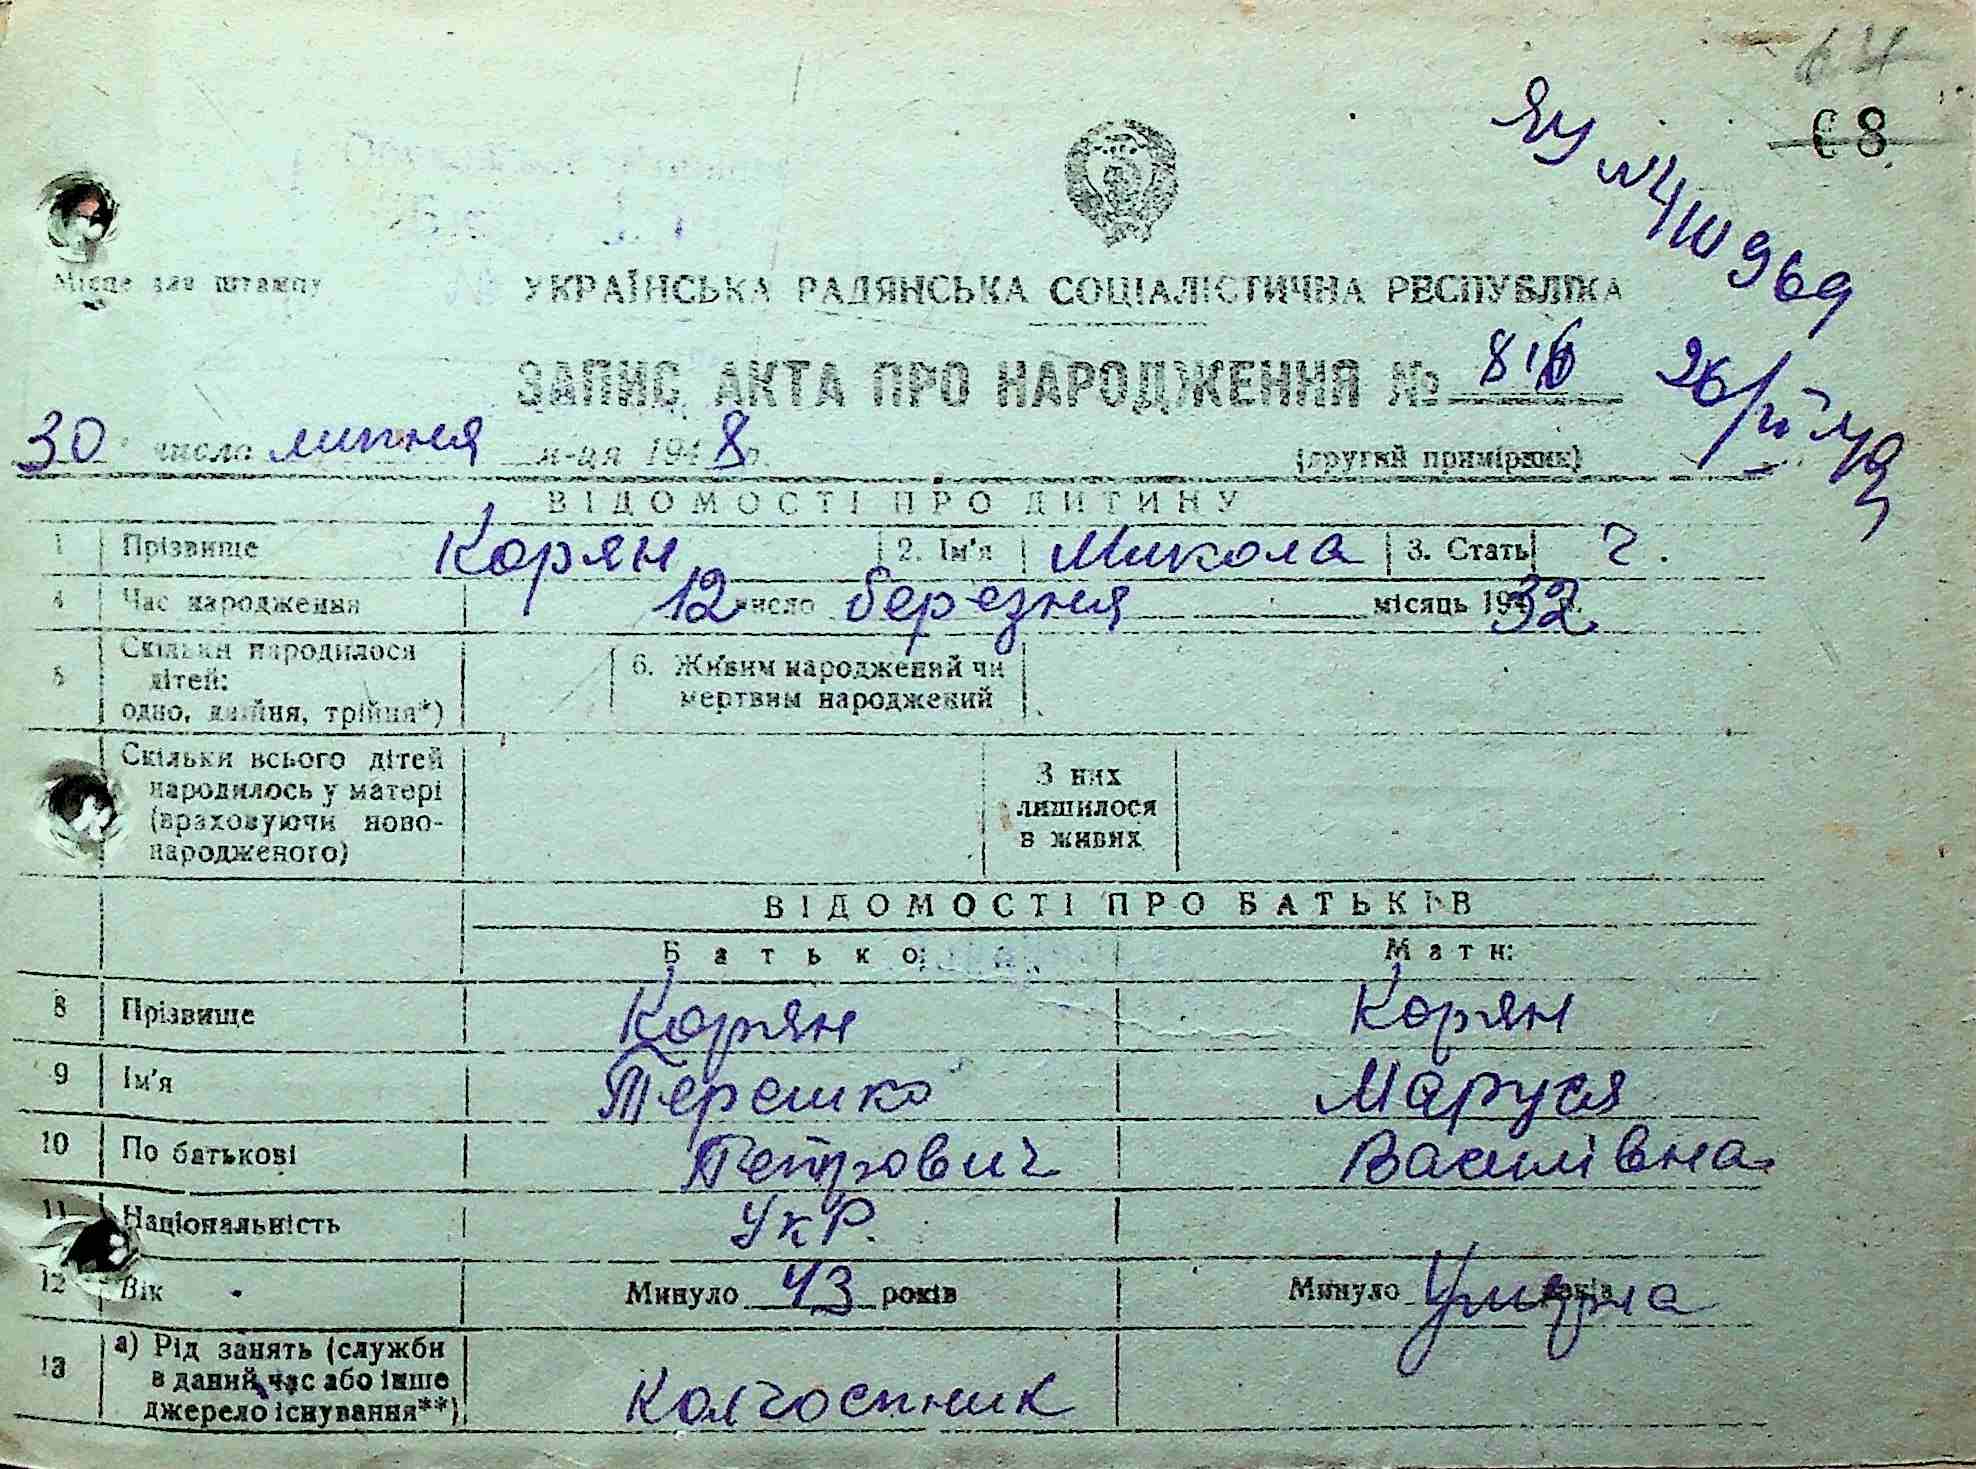 64
68
ЯУ №410969
Місце для штампу
УКРАЇНСЬКА РАДЯНСЬКА СОЦІАЛІСТИЧНА РЕСПУБЛІКА
ЗАПИС АКТА ПРО НАРОДЖЕННЯ № 816
30 число липня м-ця 1948 р.
(другий примірник)
ВІДОМОСТІ ПРО ДИТИНУ
1 Прізвище Корян 2. Ім'я Микола 3. Стать ч.
4 Час народження 12 число березня місяць 1932 р.
5 Скільки народилося
дітей:
одно, двійня, трійня*)
6. Живим народжений чи
мертвим народжений
Скільки всього дітей
народилось у матері
(враховуючи ново-
народженого)
З них
лишилося
в живих
ВІДОМОСТІ ПРО БАТЬКІВ
Батько: Мати:
8 Прізвище Корян Корян
9 Ім'я Терешко Маруся
10 По батькові Петрович Василівна
11 Національність Укр.
12 Вік Минуло 43 років Минуло Умерла років
13 а) Рід занять (служби
в даний час або інше
джерело існування**)
Колгоспник